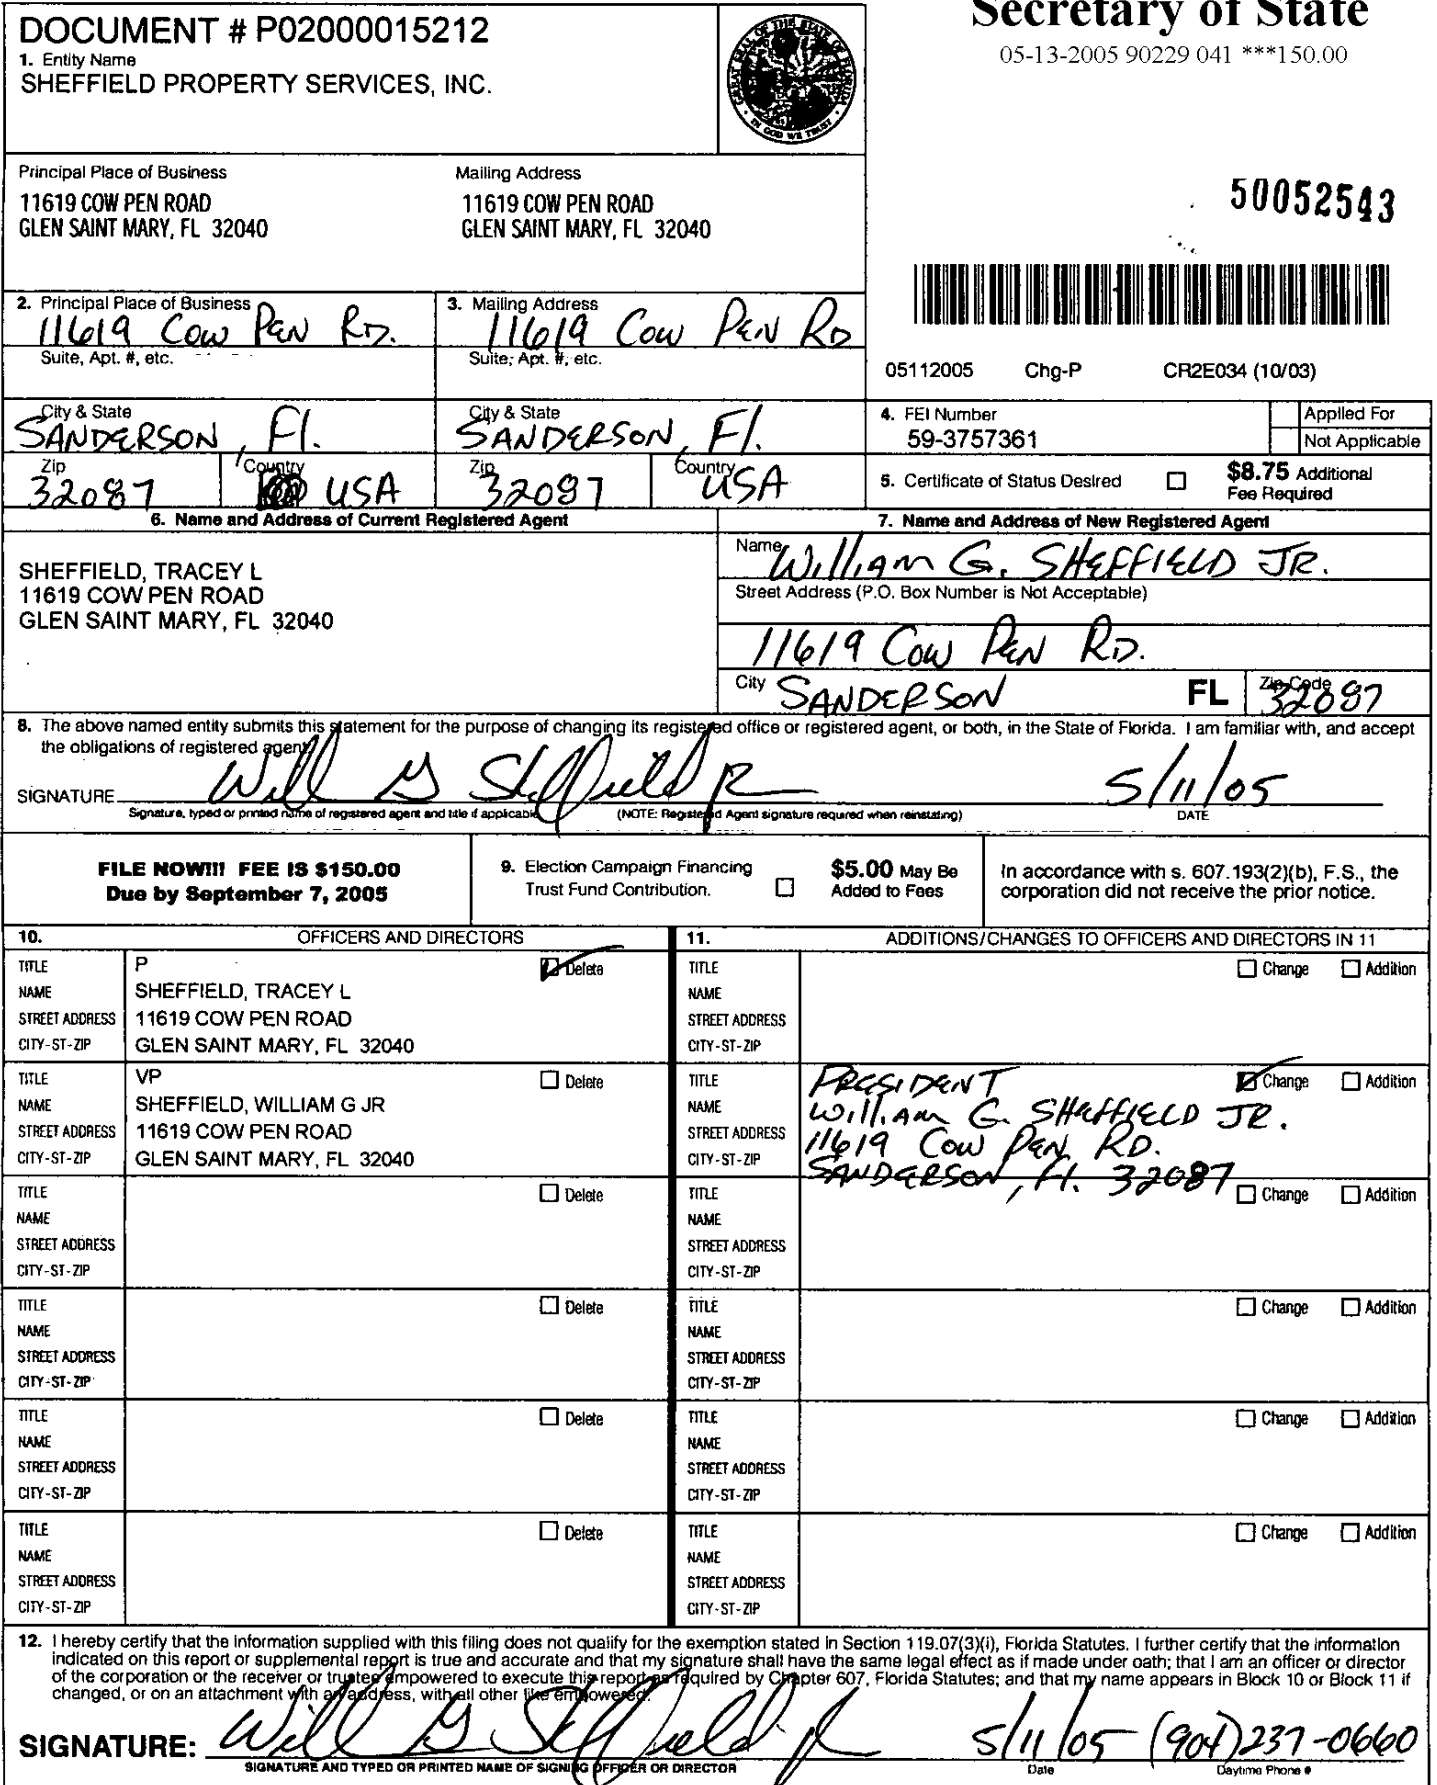 Secretary of State
05-13-2005 90229 041 ***150.00
DOCUMENT # P02000015212
1. Entity Name
SHEFFIELD PROPERTY SERVICES, INC.
GREAT SEAL OF THE STATE OF FLORIDA
IN GOD WE TRUST
Principal Place of Business
11619 COW PEN ROAD
GLEN SAINT MARY, FL 32040
Mailing Address
11619 COW PEN ROAD
GLEN SAINT MARY, FL 32040
50052543
2. Principal Place of Business
11619 Cow Pen Rd.
Suite, Apt. #, etc.
3. Mailing Address
11619 Cow Pen Rd
Suite, Apt. #, etc.
05112005 Chg-P CR2E034 (10/03)
City & State
SANDERSON, Fl.
City & State
SANDERSON, Fl.
Zip
32087
Country
USA
Zip
32087
Country
USA
4. FEI Number
59-3757361
Applied For
Not Applicable
5. Certificate of Status Desired
$8.75 Additional
Fee Required
6. Name and Address of Current Registered Agent
SHEFFIELD, TRACEY L
11619 COW PEN ROAD
GLEN SAINT MARY, FL 32040
7. Name and Address of New Registered Agent
Name
William G. SHEFFIELD JR.
Street Address (P.O. Box Number is Not Acceptable)
11619 Cow Pen Rd.
City
SANDERSON
FL
Zip Code
32087
8. The above named entity submits this statement for the purpose of changing its registered office or registered agent, or both, in the State of Florida. I am familiar with, and accept
the obligations of registered agent.
SIGNATURE Will G Sheffield JR 5/11/05
Signature, typed or printed name of registered agent and title if applicable (NOTE: Registered Agent signature required when reinstating) DATE
FILE NOW!!! FEE IS $150.00
Due by September 7, 2005
9. Election Campaign Financing
Trust Fund Contribution.
$5.00 May Be
Added to Fees
In accordance with s. 607.193(2)(b), F.S., the
corporation did not receive the prior notice.
10. OFFICERS AND DIRECTORS
11. ADDITIONS/CHANGES TO OFFICERS AND DIRECTORS IN 11
TITLE P Delete
NAME SHEFFIELD, TRACEY L
STREET ADDRESS 11619 COW PEN ROAD
CITY-ST-ZIP GLEN SAINT MARY, FL 32040
TITLE Change Addition
NAME
STREET ADDRESS
CITY-ST-ZIP
TITLE VP Delete
NAME SHEFFIELD, WILLIAM G JR
STREET ADDRESS 11619 COW PEN ROAD
CITY-ST-ZIP GLEN SAINT MARY, FL 32040
TITLE PRESIDENT Change Addition
NAME William G. SHEFFIELD JR.
STREET ADDRESS 11619 Cow Pen Rd.
CITY-ST-ZIP SANDERSON, Fl. 32087
TITLE Delete
NAME
STREET ADDRESS
CITY-ST-ZIP
TITLE Change Addition
NAME
STREET ADDRESS
CITY-ST-ZIP
TITLE Delete
NAME
STREET ADDRESS
CITY-ST-ZIP
TITLE Change Addition
NAME
STREET ADDRESS
CITY-ST-ZIP
TITLE Delete
NAME
STREET ADDRESS
CITY-ST-ZIP
TITLE Change Addition
NAME
STREET ADDRESS
CITY-ST-ZIP
TITLE Delete
NAME
STREET ADDRESS
CITY-ST-ZIP
TITLE Change Addition
NAME
STREET ADDRESS
CITY-ST-ZIP
12. I hereby certify that the information supplied with this filing does not qualify for the exemption stated in Section 119.07(3)(i), Florida Statutes. I further certify that the information
indicated on this report or supplemental report is true and accurate and that my signature shall have the same legal effect as if made under oath; that I am an officer or director
of the corporation or the receiver or trustee empowered to execute this report as required by Chapter 607, Florida Statutes; and that my name appears in Block 10 or Block 11 if
changed, or on an attachment with an address, with all other like empowered.
SIGNATURE: Will G Sheffield JR 5/11/05 (904)237-0660
SIGNATURE AND TYPED OR PRINTED NAME OF SIGNING OFFICER OR DIRECTOR Date Daytime Phone #